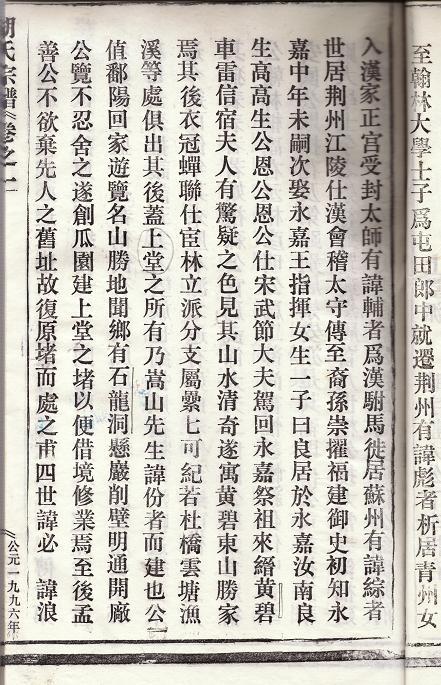 至翰林大學士子爲屯田郎中就遷荆州有諱彪者析居青州女
入漢家正宫受封太師有諱輔者爲漢駙馬徙居蘇州有諱綜者
世居荆州江陵仕漢會稽太守傳至裔孫崇擢福建御史初知永
嘉中年未嗣次娶永嘉王指揮女生一子曰良居於永嘉汝南良
生高高生公恩公恩公仕宋武節大夫駕回永嘉祭祖來縉黄碧
車雷信宿夫人有驚疑之色見其山水清奇遂寓黄碧東山勝家
焉其後衣冠蟬聯仕宦林立派分支屬纍七可紀若杜橋雲塘漁
溪等處俱出其後蓋上堂之所有乃嵩山先生諱份者而建也公
值鄱陽回家遊覽名山勝地聞鄉有石龍洞懸巖削壁明通開廠
公覽不忍舍之遂創瓜園建上堂之堵以便借境修業焉至後孟
善公不欲棄先人之舊址故復原堵而處之甫四世諱必 諱浪
胡氏宗譜《卷之一
《公元一九九六年